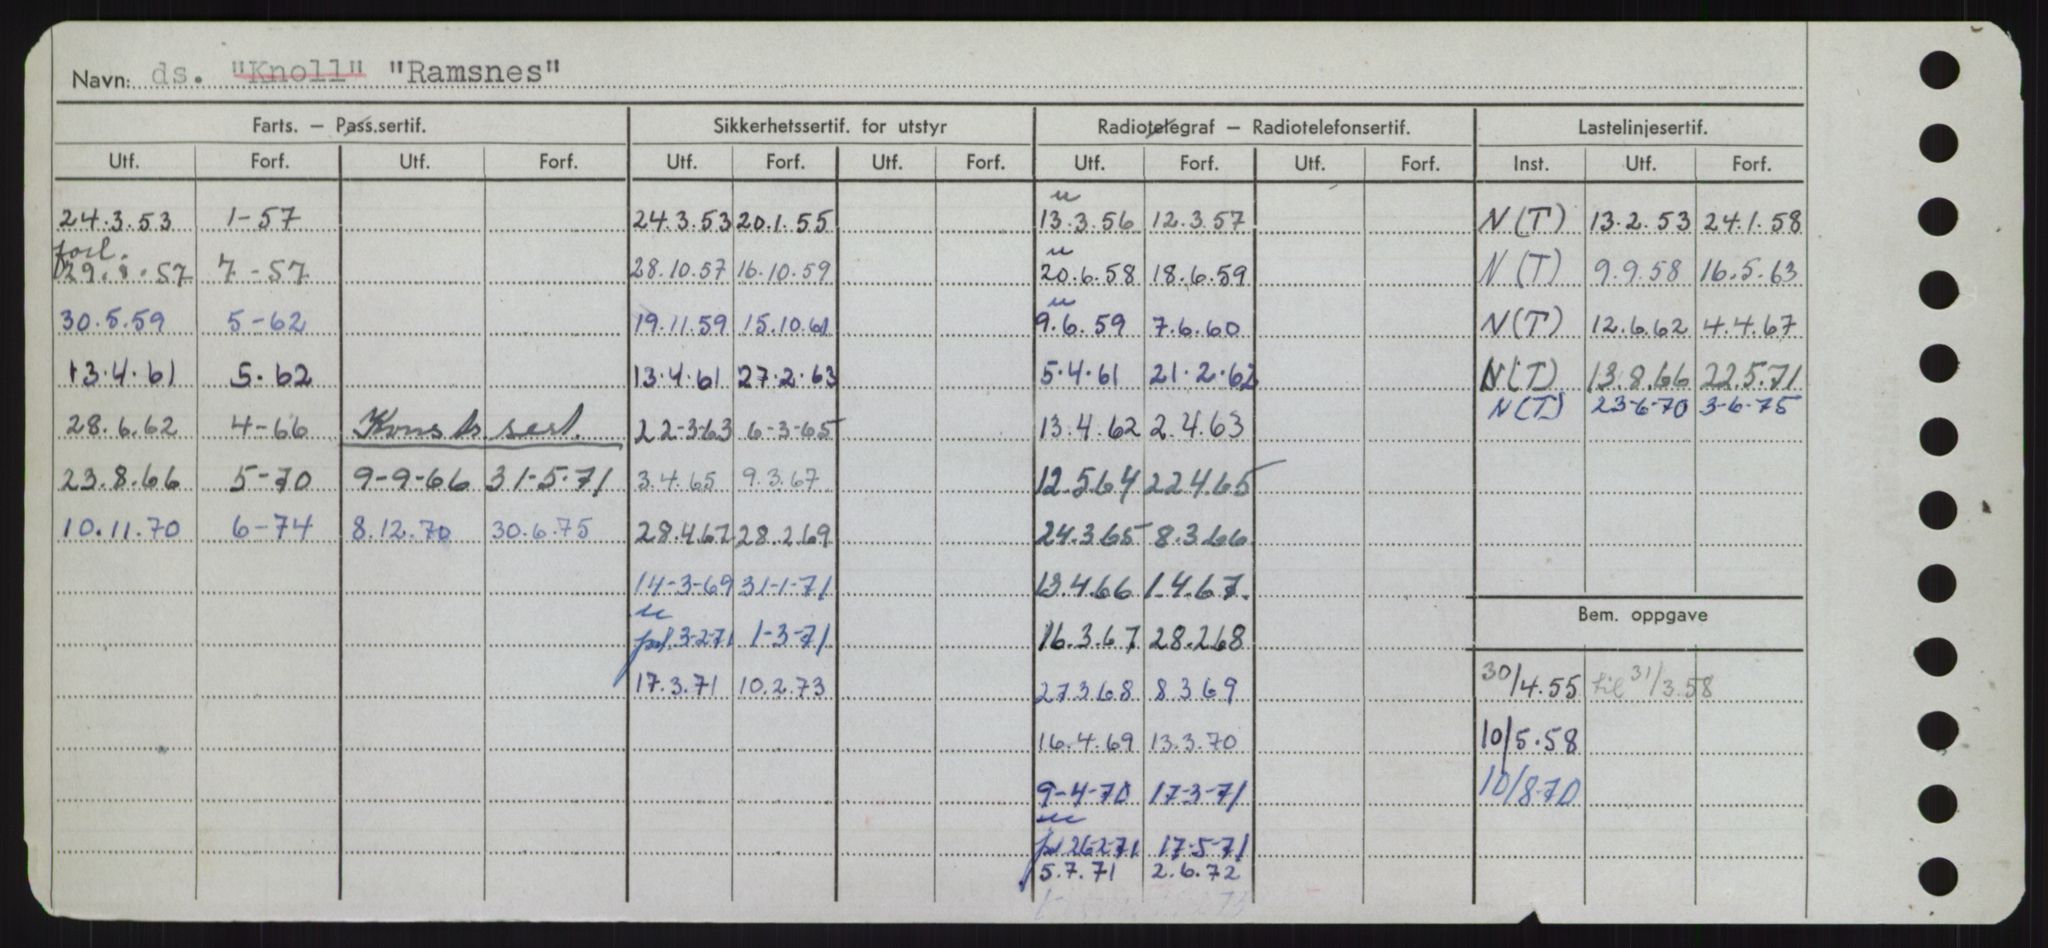 Navn: ds. "Knoll" "Ramsnes"
Farts. – Pass.sertif. Sikkerhetssertif. for utstyr Radiotelegraf – Radiotelefonsertif. Lastelinjesertif.
Utf. Forf. Utf. Forf. Utf. Forf. Utf. Forf. Utf. Forf. Utf. Forf. Inst. Utf. Forf.
u
24.3.53 1-57 24.3.53 20.1.55 13.3.56 12.3.57 N(T) 13.2.53 24.1.58
forl. u
29.8.57 7-57 28.10.57 16.10.59 20.6.58 18.6.59 N(T) 9.9.58 16.5.63
u
30.5.59 5-62 19.11.59 15.10.61 9.6.59 7.6.60 N(T) 12.6.62 4.4.67
13.4.61 5.62 13.4.61 27.2.63 5.4.61 21.2.62 N(T) 13.8.66 22.5.71
N(T) 23-6-70 3-6-75
28.6.62 4-66 Konstr sert. 22-3-63 6-3-65 13.4.62 2.4.63
23.8.66 5-70 9-9-66 31-5-71 3.4.65 9.3.67 12.5.64 22.4.65
10.11.70 6-74 8.12.70 30.6.75 28.4.67 28.2.69 24.3.65 8.3.66
14-3-69 31-1-71 13.4.66 1.4.67.
Bem. oppgave
u
3-2-71 1-3-71 16.3.67 28.2.68
17.3.71 10.2.73 27.3.68 8.3.69 30/4.55 til 31/3.58
16.4.69 13.3.70 10/5.58
9-4-70 17-3-71 10/8-70
u
26-2-71 17-5-71
5.7.71 2.6.72